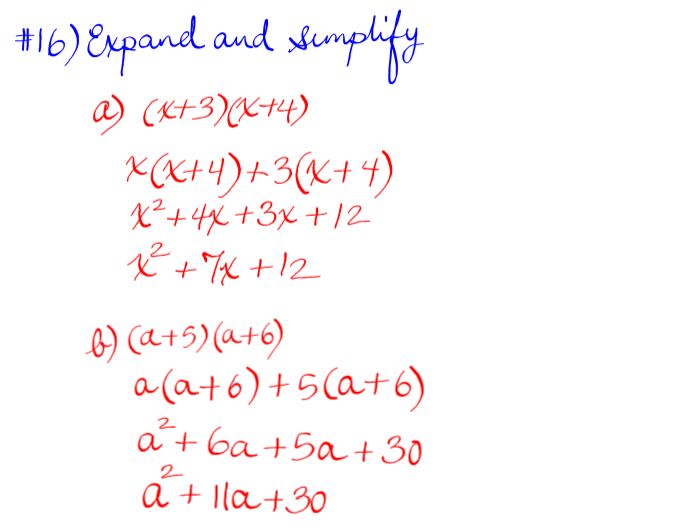 #16) Expand and simplify
a) (x+3)(x+4)
x(x+4)+3(x+4)
x²+4x+3x+12
x²+7x+12
b) (a+5)(a+6)
a(a+6)+5(a+6)
a²+6a+5a+30
a²+11a+30